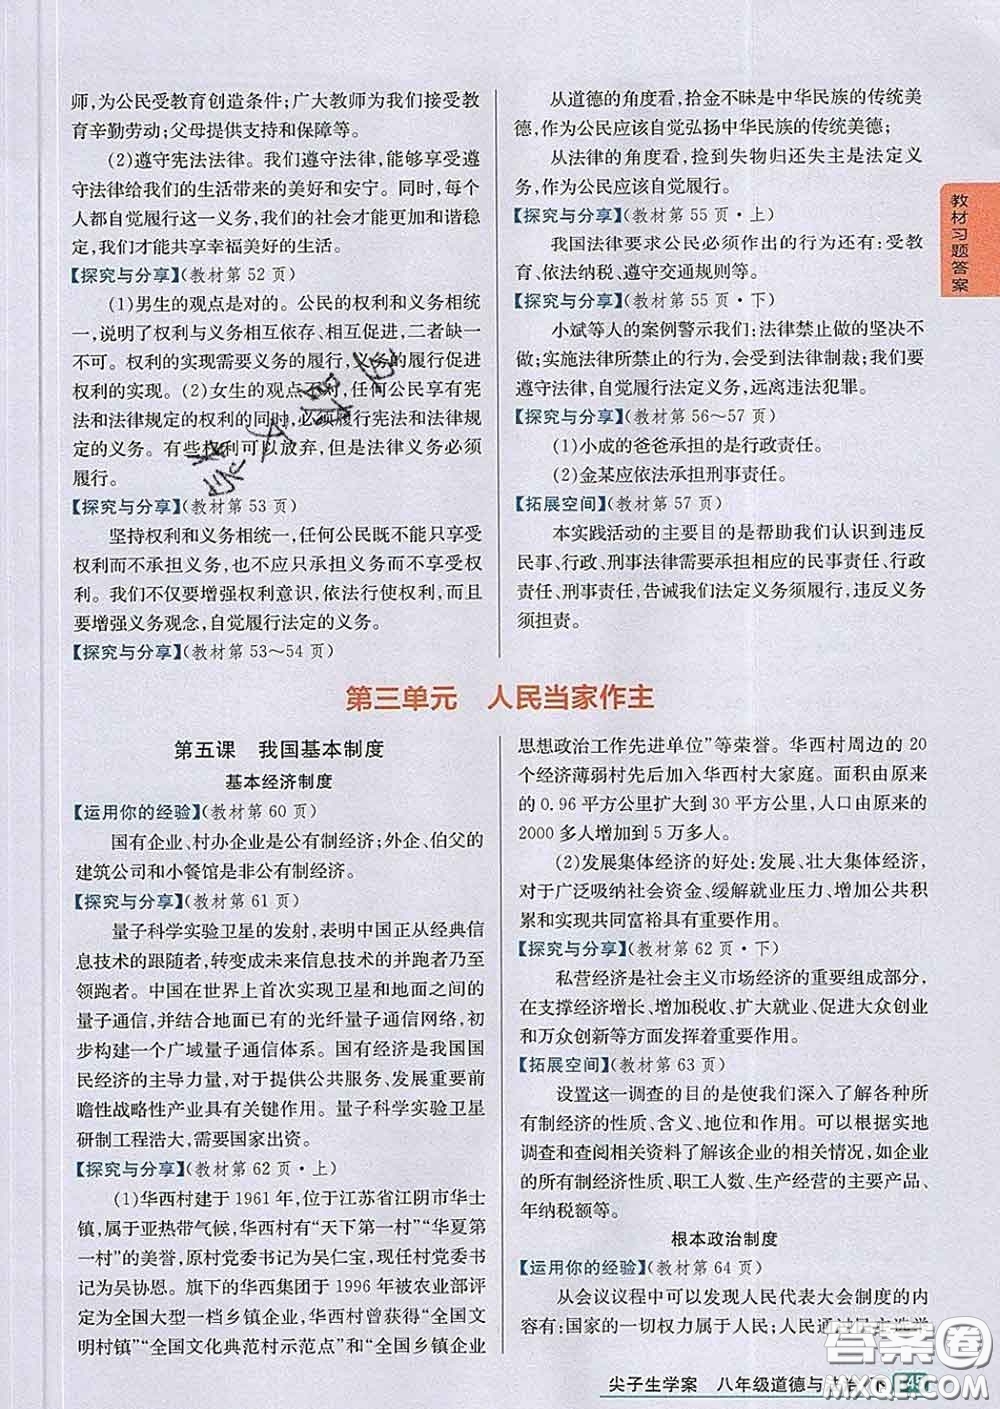 师,为公民受教育创造条件;广大教师为我们接受教
育辛勤劳动;父母提供支持和保障等。
(2)遵守宪法法律。我们遵守法律,能够享受遵
守法律给我们的生活带来的美好和安宁。同时,每个
人都自觉履行这一义务,我们的社会才能更加和谐稳
定,我们才能共享幸福美好的生活。
【探究与分享】(教材第 52 页)
(1)男生的观点是对的。公民的权利和义务相统
一,说明了权利与义务相互依存、相互促进,二者缺一
不可。权利的实现需要义务的履行,义务的履行促进
权利的实现。(2)女生的观点不对,任何公民享有宪
法和法律规定的权利的同时,必须履行宪法和法律规
定的义务。有些权利可以放弃,但是法律义务必须
履行。
【探究与分享】(教材第 53 页)
坚持权利和义务相统一,任何公民既不能只享受
权利而不承担义务,也不应只承担义务而不享受权
利。我们不仅要增强权利意识,依法行使权利,而且
要增强义务观念,自觉履行法定的义务。
【探究与分享】(教材第 53～54 页)
从道德的角度看,拾金不昧是中华民族的传统美
德,作为公民应该自觉弘扬中华民族的传统美德;
从法律的角度看,捡到失物归还失主是法定义
务,作为公民应该自觉履行。
【探究与分享】(教材第 55 页·上)
我国法律要求公民必须作出的行为还有:受教
育、依法纳税、遵守交通规则等。
【探究与分享】(教材第 55 页·下)
小斌等人的案例警示我们:法律禁止做的坚决不
做;实施法律所禁止的行为,会受到法律制裁;我们要
遵守法律,自觉履行法定义务,远离违法犯罪。
【探究与分享】(教材第 56～57 页)
(1)小成的爸爸承担的是行政责任。
(2)金某应依法承担刑事责任。
【拓展空间】(教材第 57 页)
本实践活动的主要目的是帮助我们认识到违反
民事、行政、刑事法律需要承担相应的民事责任、行政
责任、刑事责任,告诫我们法定义务须履行,违反义务
须担责。
教材习题答案
第三单元 人民当家作主
第五课 我国基本制度
基本经济制度
【运用你的经验】(教材第 60 页)
国有企业、村办企业是公有制经济;外企、伯父的
建筑公司和小餐馆是非公有制经济。
【探究与分享】(教材第 61 页)
量子科学实验卫星的发射,表明中国正从经典信
息技术的跟随者,转变成未来信息技术的并跑者乃至
领跑者。中国在世界上首次实现卫星和地面之间的
量子通信,并结合地面已有的光纤量子通信网络,初
步构建一个广域量子通信体系。国有经济是我国国
民经济的主导力量,对于提供公共服务、发展重要前
瞻性战略性产业具有关键作用。量子科学实验卫星
研制工程浩大,需要国家出资。
【探究与分享】(教材第 62 页·上)
(1)华西村建于 1961 年,位于江苏省江阴市华士
镇,属于亚热带气候,华西村有“天下第一村”“华夏第
一村”的美誉,原村党委书记为吴仁宝,现任村党委书
记为吴协恩。旗下的华西集团于 1996 年被农业部评
定为全国大型一档乡镇企业,华西村曾获得“全国文
明村镇”“全国文化典范村示范点”和“全国乡镇企业
思想政治工作先进单位”等荣誉。华西村周边的 20
个经济薄弱村先后加入华西村大家庭。面积由原来
的 0.96 平方公里扩大到 30 平方公里,人口由原来的
2000 多人增加到 5 万多人。
(2)发展集体经济的好处:发展、壮大集体经济,
对于广泛吸纳社会资金、缓解就业压力、增加公共积
累和实现共同富裕具有重要作用。
【探究与分享】(教材第 62 页·下)
私营经济是社会主义市场经济的重要组成部分,
在支撑经济增长、增加税收、扩大就业、促进大众创业
和万众创新等方面发挥着重要作用。
【拓展空间】(教材第 63 页)
设置这一调查的目的是使我们深入了解各种所
有制经济的性质、含义、地位和作用。可以根据实地
调查和查阅相关资料了解该企业的相关情况,如企业
的所有制经济性质、职工人数、生产经营的主要产品、
年纳税额等。
根本政治制度
【运用你的经验】(教材第 64 页)
从会议议程中可以发现人民代表大会制度的内
容有:国家的一切权力属于人民;人民通过民主选举
尖子生学案 八年级道德与法治(下) 45
答案圈